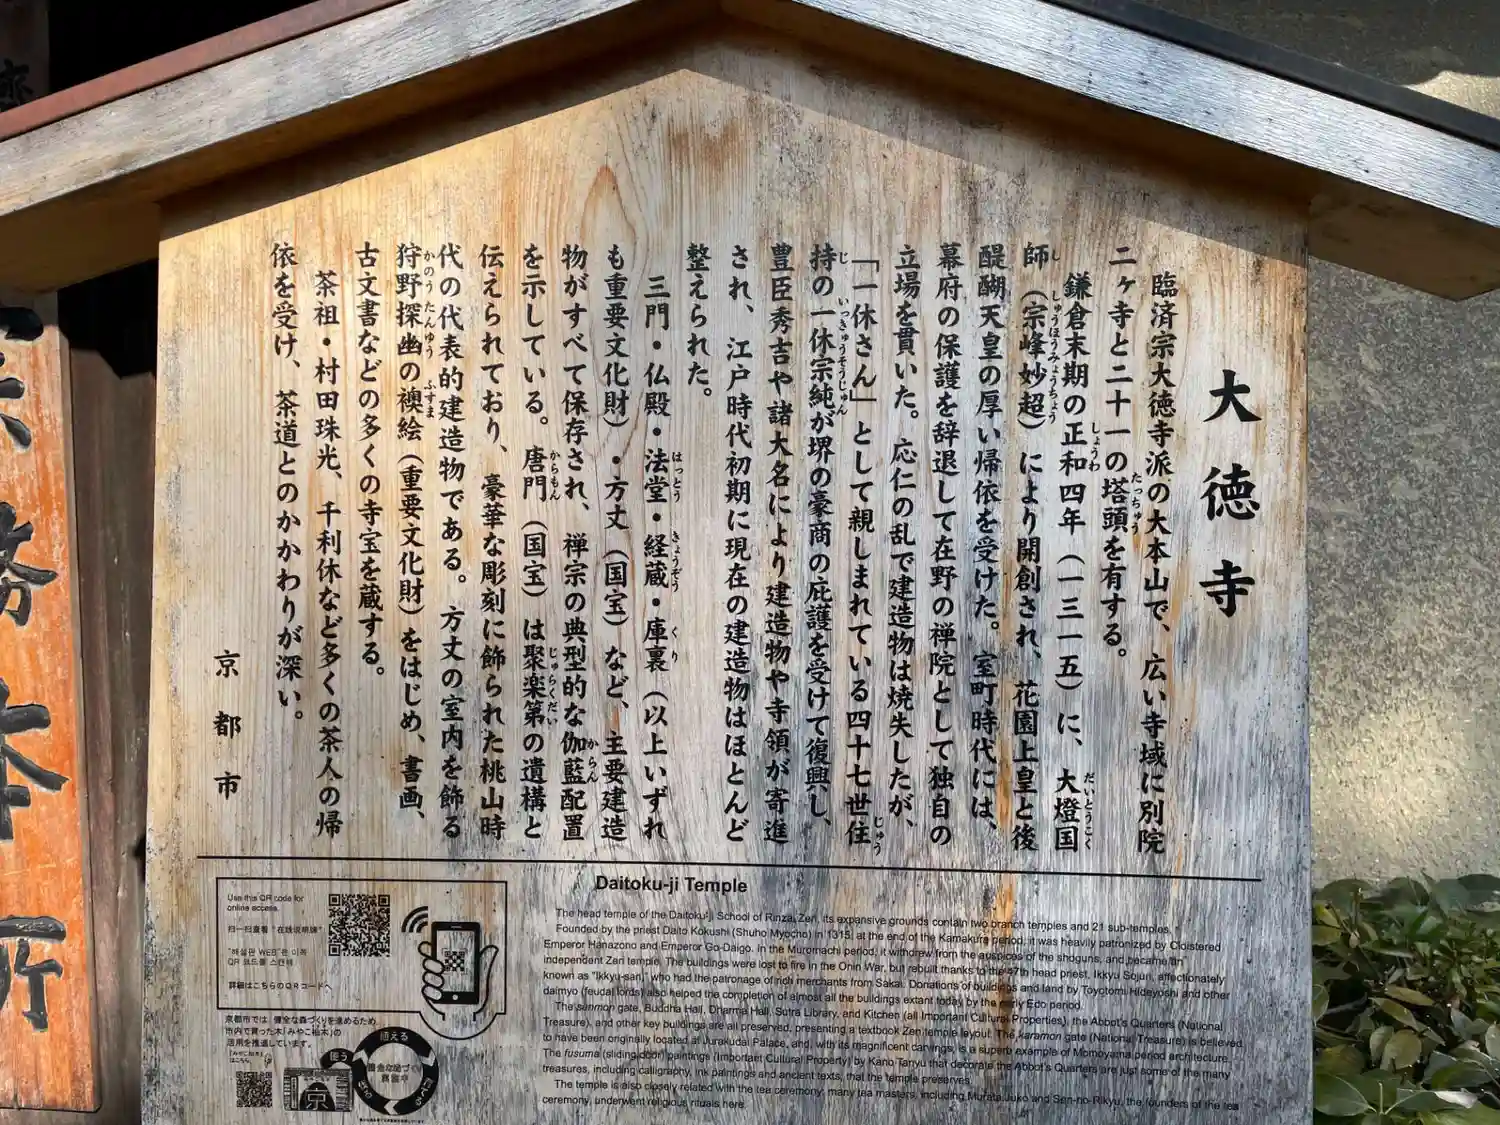 大徳寺
臨済宗大徳寺派の大本山で、広い寺域に別院
二ヶ寺と二十一の塔頭を有する。
たっちゅう
鎌倉末期の正和四年（一三一五）に、大燈国
しょうわ
だいとうこく
師（宗峰妙超）により開創され、花園上皇と後
し
しゅうほうみょうちょう
醍醐天皇の厚い帰依を受けた。室町時代には、
幕府の保護を辞退して在野の禅院として独自の
立場を貫いた。応仁の乱で建造物は焼失したが、
「一休さん」として親しまれている四十七世住
じゅう
持の一休宗純が堺の豪商の庇護を受けて復興し、
じ
いっきゅうそうじゅん
豊臣秀吉や諸大名により建造物や寺領が寄進
され、江戸時代初期に現在の建造物はほとんど
整えられた。
三門・仏殿・法堂・経蔵・庫裏（以上いずれ
はっとう
きょうぞう
くり
も重要文化財）・方丈（国宝）など、主要建造
物がすべて保存され、禅宗の典型的な伽藍配置
からん
を示している。唐門（国宝）は聚楽第の遺構と
からもん
じゅらくだい
伝えられており、豪華な彫刻に飾られた桃山時
代の代表的建造物である。方丈の室内を飾る
狩野探幽の襖絵（重要文化財）をはじめ、書画、
かのうたんゆう
ふすま
古文書などの多くの寺宝を蔵する。
茶祖・村田珠光、千利休など多くの茶人の帰
依を受け、茶道とのかかわりが深い。
京都市
Daitoku-ji Temple
The head temple of the Daitoku-ji School of Rinzai Zen, its expansive grounds contain two branch temples and 21 sub-temples.
Founded by the priest Daito Kokushi (Shuho Myocho) in 1315, at the end of the Kamakura period, it was heavily patronized by Cloistered
Emperor Hanazono and Emperor Go-Daigo. In the Muromachi period, it withdrew from the auspices of the shoguns, and became an
independent Zen temple. The buildings were lost to fire in the Onin War, but rebuilt thanks to the 47th head priest, Ikkyu Sojun, affectionately
known as "Ikkyu-san," who had the patronage of rich merchants from Sakai. Donations of buildings and land by Toyotomi Hideyoshi and other
daimyo (feudal lords) also helped the completion of almost all the buildings extant today by the early Edo period.
The sanmon gate, Buddha Hall, Dharma Hall, Sutra Library, and Kitchen (all Important Cultural Properties), the Abbot's Quarters (National
Treasure), and other key buildings are all preserved, presenting a textbook Zen temple layout. The karamon gate (National Treasure) is believed
to have been originally located at Jurakudai Palace, and, with its magnificent carvings, is a superb example of Momoyama period architecture.
The fusuma (sliding door) paintings (Important Cultural Property) by Kano Tanyu that decorate the Abbot's Quarters are just some of the many
treasures, including calligraphy, ink paintings and ancient texts, that the temple preserves.
The temple is also closely related with the tea ceremony; many tea masters, including Murata Juko and Sen-no-Rikyu, the founders of the tea
ceremony, underwent religious rituals here.
Use this QR code for
online access.
扫一扫查看"在线说明牌"
"해설판 WEB"은 이쪽
QR 코드를 스캔해
詳細はこちらのQRコードへ
京都市では、健全な森づくりを進めるため、
市内で育った木「みやこ杣木」の
活用を推進しています。
植える
使う
京
務本所